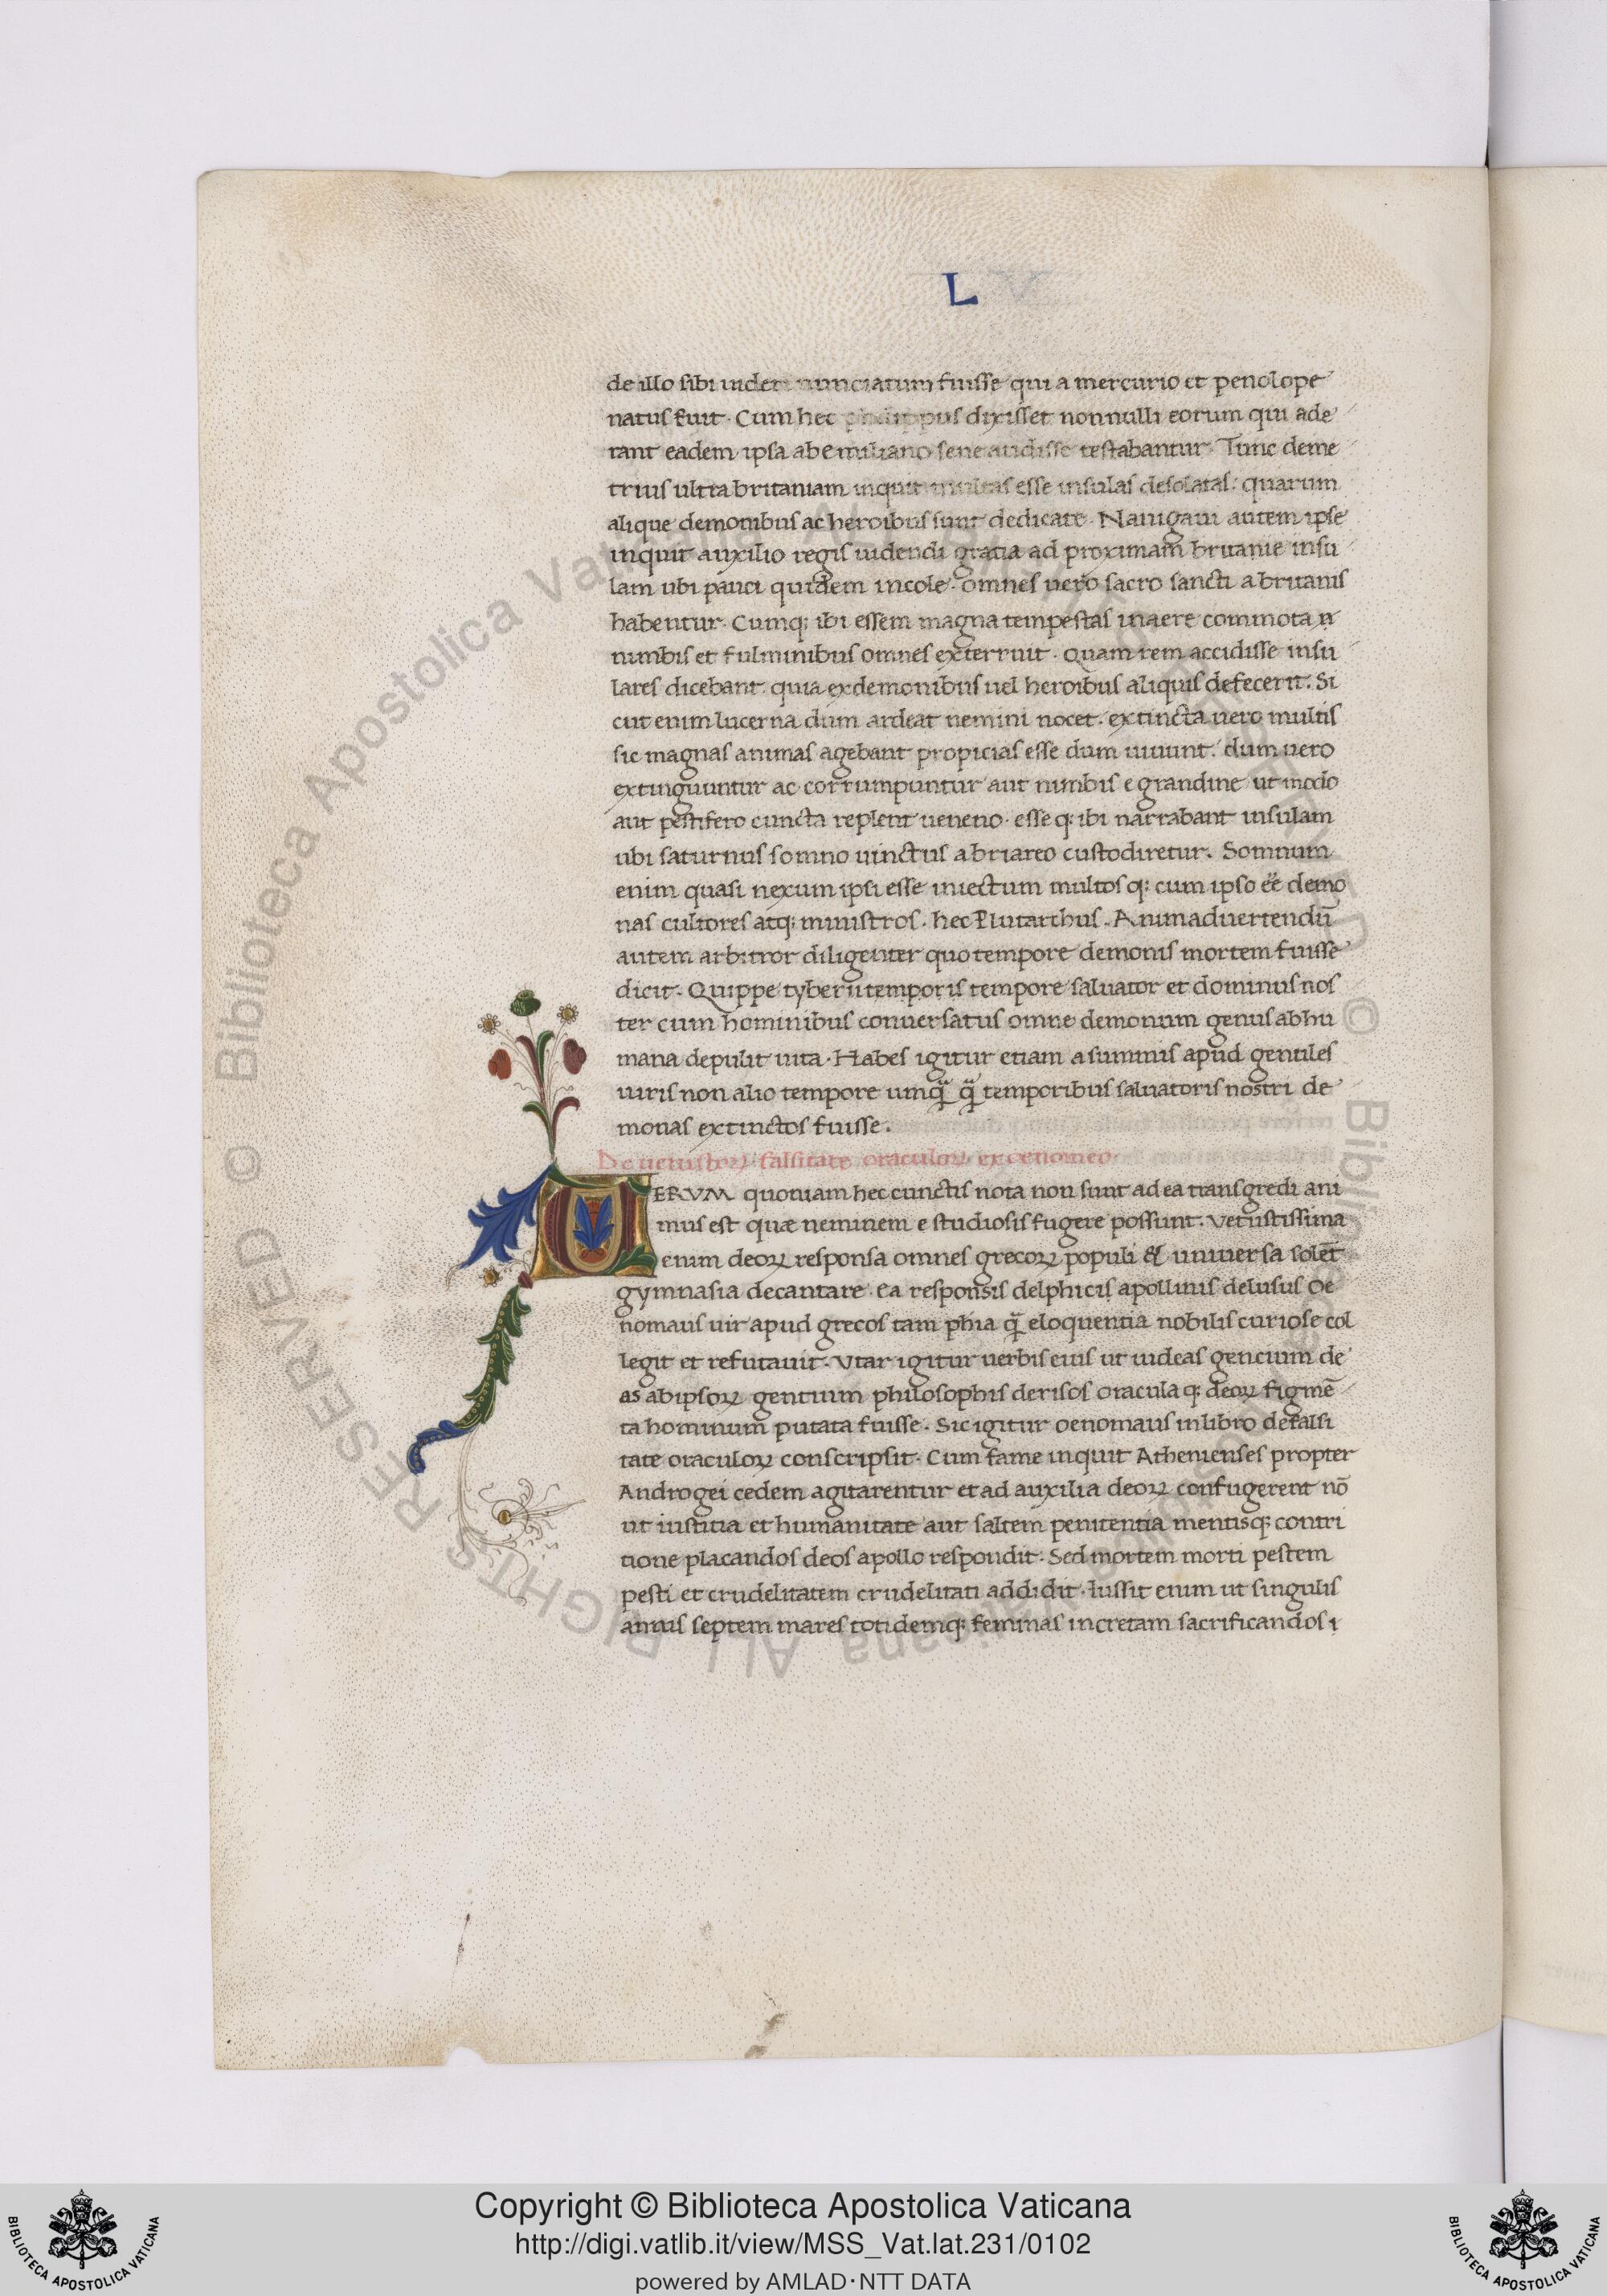 L
de illo sibi uideri nunciatum fuisse qui a mercurio et penolope
natus fuit. Cum hec philippus dixisset nonnulli eorum qui ade
rant eadem ipsa ab emiliano sene audisse testabantur. Tunc deme
trius ultra britaniam inquit multas esse insulas desolatas: quarum
alique demonibus ac heroibus sunt dedicate. Nauigaui autem ipse
inquit auxilio regis uidendi gratia ad proximam britanie insu
lam ubi pauci quidem incole. omnes uero sacro sancti a britanis
habentur. Cumq; ibi essem magna tempestas in aere commota
nimbis et fulminibus omnes exterruit. Quam rem accidisse insu
lares dicebant quia ex demonibus uel heroibus aliquis defecerit. Si
cut enim lucerna dum ardeat nemini nocet. extincta uero multis
sic magnas animas agebant propicias esse dum uiuunt. dum uero
extinguuntur ac corrumpuntur aut nimbis e grandine ut modo
aut pestifero cuncta replent ueneno. esse q; ibi narrabant insulam
ubi saturnus somno uinctus a briareo custodiretur. Somnum
enim quasi nexum ipsi esse iniectum multos q; cum ipso eē demo
nas cultores atq; ministros. hec Plutarchus. Animaduertendū
autem arbitror diligenter quo tempore demonis mortem fuisse
dicit. Quippe tyberii temporis tempore saluator et dominus nos
ter cum hominibus conuersatus omne demonum genus ab hu
mana depulit uita. Habes igitur etiam a summis apud gentiles
uiris non alio tempore umq̄ q̄ temporibus saluatoris nostri de
monas extinctos fuisse.
De uetustoꝝ falsitate oraculoꝝ ex oenomeo.
VERVM quoniam hec cunctis nota non sunt ad ea transgredi ani
mus est quæ neminem e studiosis fugere possunt. Vetustissima
enim deoꝝ responsa omnes grecoꝝ populi & uniuersa solēt
gymnasia decantare. ea responsis delphicis apollinis delusus Oe
nomaus uir apud grecos tam phia q̄ eloquentia nobilis curiose col
legit et refutauit. Vtar igitur uerbis eius ut uideas gencium de
as ab ipsoꝝ gentium philosophis derisos oracula q; deoꝝ figmē
ta hominum putata fuisse. Sic igitur oenomaus in libro de falsi
tate oraculoꝝ conscripsit. Cum fame inquit Athenienses propter
Androgei cedem agitarentur et ad auxilia deoꝝ confugerent nō
ut iustitia et humanitate aut saltem penitentia mentisq; contri
tione placandos deos apollo respondit. Sed mortem morti pestem
pesti et crudelitatem crudelitati addidit. Iussit enim ut singulis
annis septem mares totidemq; feminas in cretam sacrificandos i
© Biblioteca Apostolica Vaticana ALL RIGHTS RESERVED
© Biblioteca Apostolica Vaticana ALL RIGHTS RESERVED
BIBLIOTECA APOSTOLICA VATICANA
Copyright © Biblioteca Apostolica Vaticana
http://digi.vatlib.it/view/MSS_Vat.lat.231/0102
powered by AMLAD·NTT DATA
BIBLIOTECA APOSTOLICA VATICANA